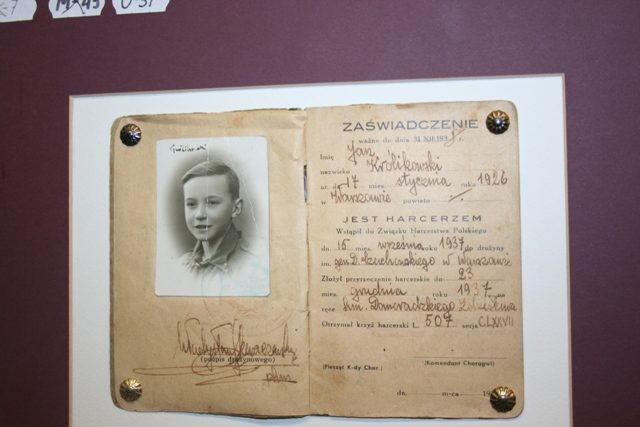 M-45
Królikowski
(podpis drużynowego)
phm.
ZAŚWIADCZENIE
ważne do dnia 31.XII.193 r.
Imię Jan
nazwisko Królikowski
ur. dn. 17 mies. stycznia roku 1926
w Warszawie powiatu
JEST HARCERZEM
Wstąpił do Związku Harcerstwa Polskiego
dn. 15 mies. września roku 1937 do drużyny
im. gen. D. w Warszawie
Złożył przyrzeczenie harcerskie dn. 23
mies. grudnia roku 1937 na
ręce hm. Domoradzkiego Zdzisława
Otrzymał krzyż harcerski L. 507 serja CLXXVII
(Pieczęć K-dy Chor.) (Komendant Chorągwi)
dn. m-ca 19